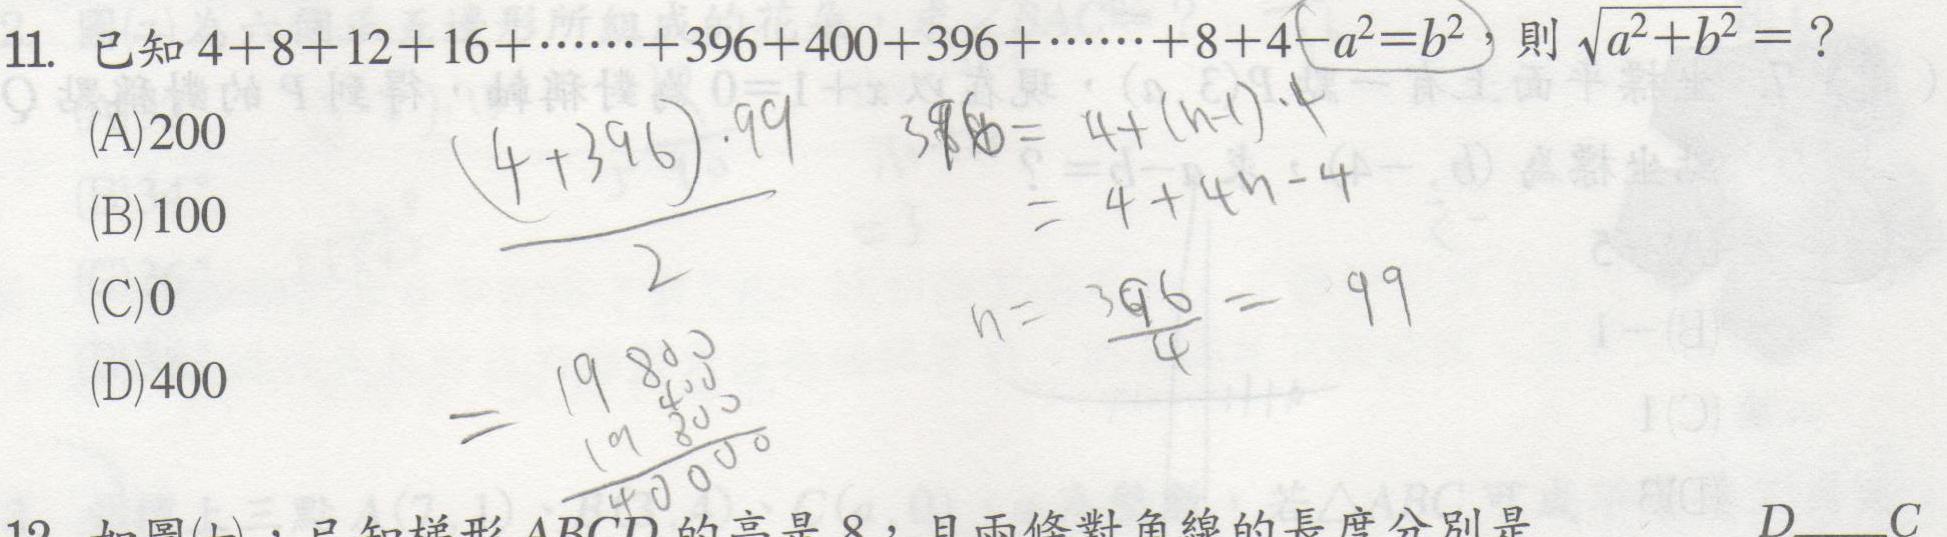 11. 已知 4+8+12+16+⋯⋯+396+400+396+⋯⋯+8+4−a²=b²，則 √(a²+b²) = ?
(A)200
(B)100
(C)0
(D)400
(4+396)·99
2
= 19800
400
19800
40000
396 = 4+(n-1)·4
= 4+4n-4
n = 396/4 = 99
12. 如圖(七)，已知梯形 ABCD 的高是 8，且兩條對角線的長度分別是
D C